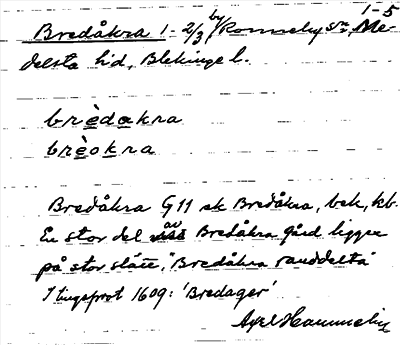 1-5
Bredåkra 1-2/3 by, Ronneby sn, Me-
delsta hd, Blekinge l.
brèdakra
brèokra
Bredåkra G11 sk Bredåkra, bek, kb.
En stor del av Bredåkra gård ligger
på stor slätt, "Bredåkra randdelta"
I tingsprot 1609: 'Bredager'
Axel